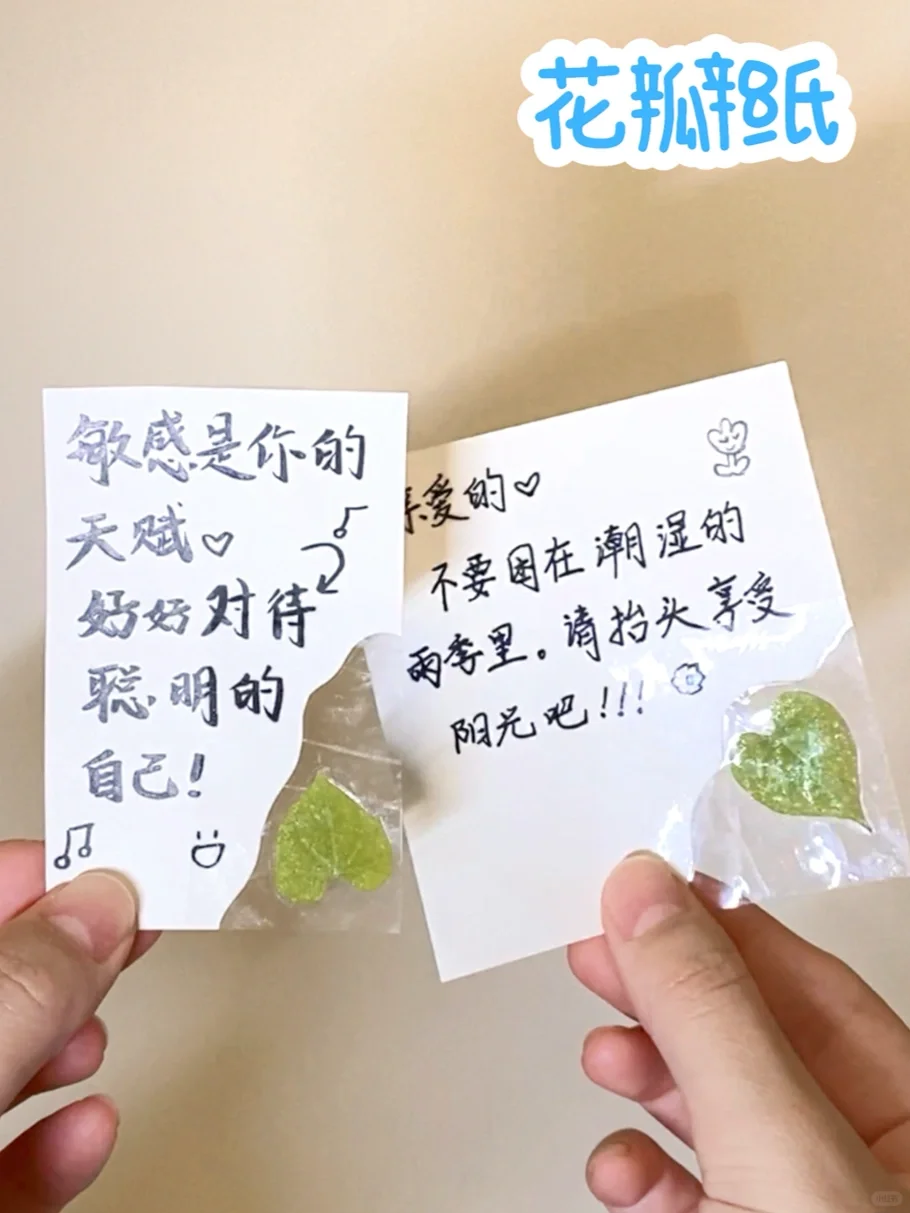 花瓣纸
敏感是你的
天赋♡
好好对待
聪明的
自己!
亲爱的♡
不要困在潮湿的
雨季里。请抬头享受
阳光吧!!!